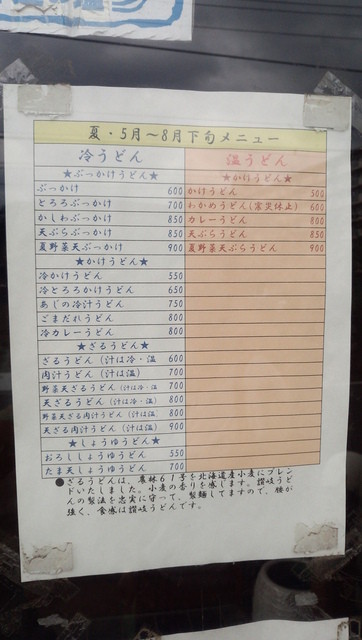 夏・5月～8月下旬メニュー
冷うどん 温うどん
★ぶっかけうどん★ ★かけうどん★
ぶっかけ 600 かけうどん 500
とろろぶっかけ 700 わかめうどん(震災休止) 600
かしわぶっかけ 850 カレーうどん 800
天ぷらぶっかけ 850 天ぷらうどん 850
夏野菜天ぶっかけ 900 夏野菜天ぷらうどん 900
★かけうどん★
冷かけうどん 550
冷とろろかけうどん 650
あじの冷汁うどん 750
ごまだれうどん 800
冷カレーうどん 800
★ざるうどん★
ざるうどん（汁は冷・温 600
肉汁うどん（汁は温） 700
野菜天ざるうどん（汁は冷・温 700
天ざるうどん（汁は冷・温） 800
野菜天ざる肉汁うどん（汁は温） 800
天ざる肉汁うどん（汁は温） 900
★しょうゆうどん★
おろししょうゆうどん 550
たま天しょうゆうどん 700
●ざるうどんは、農林61号を北海道産小麦にブレン
ドいたしました。小麦の香りを感じます。讃岐うど
んの製法を忠実に守って、製麺してますので、腰が
強く、食感は讃岐うどんです。